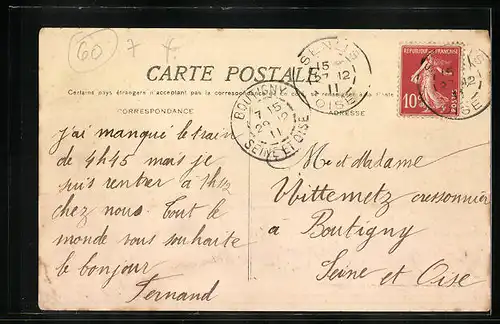 60 7 4
SENLIS
15
27 12
11
OISE
REPUBLIQUE FRANÇAISE
10c
POSTES
CARTE POSTALE
Certains pays étrangers n'acceptent pas la correspondance
CORRESPONDANCE
ADRESSE
BOUTIGNY
7 15
29 12
11
SEINE ET OISE
j'ai manqué le train
de 4h45 mais je
suis rentrer à
chez nous. Tout le
monde vous souhaite
le bonjour
Fernand
Mr et Madame
Wittemetz cressonnier
à Boutigny
Seine et Oise